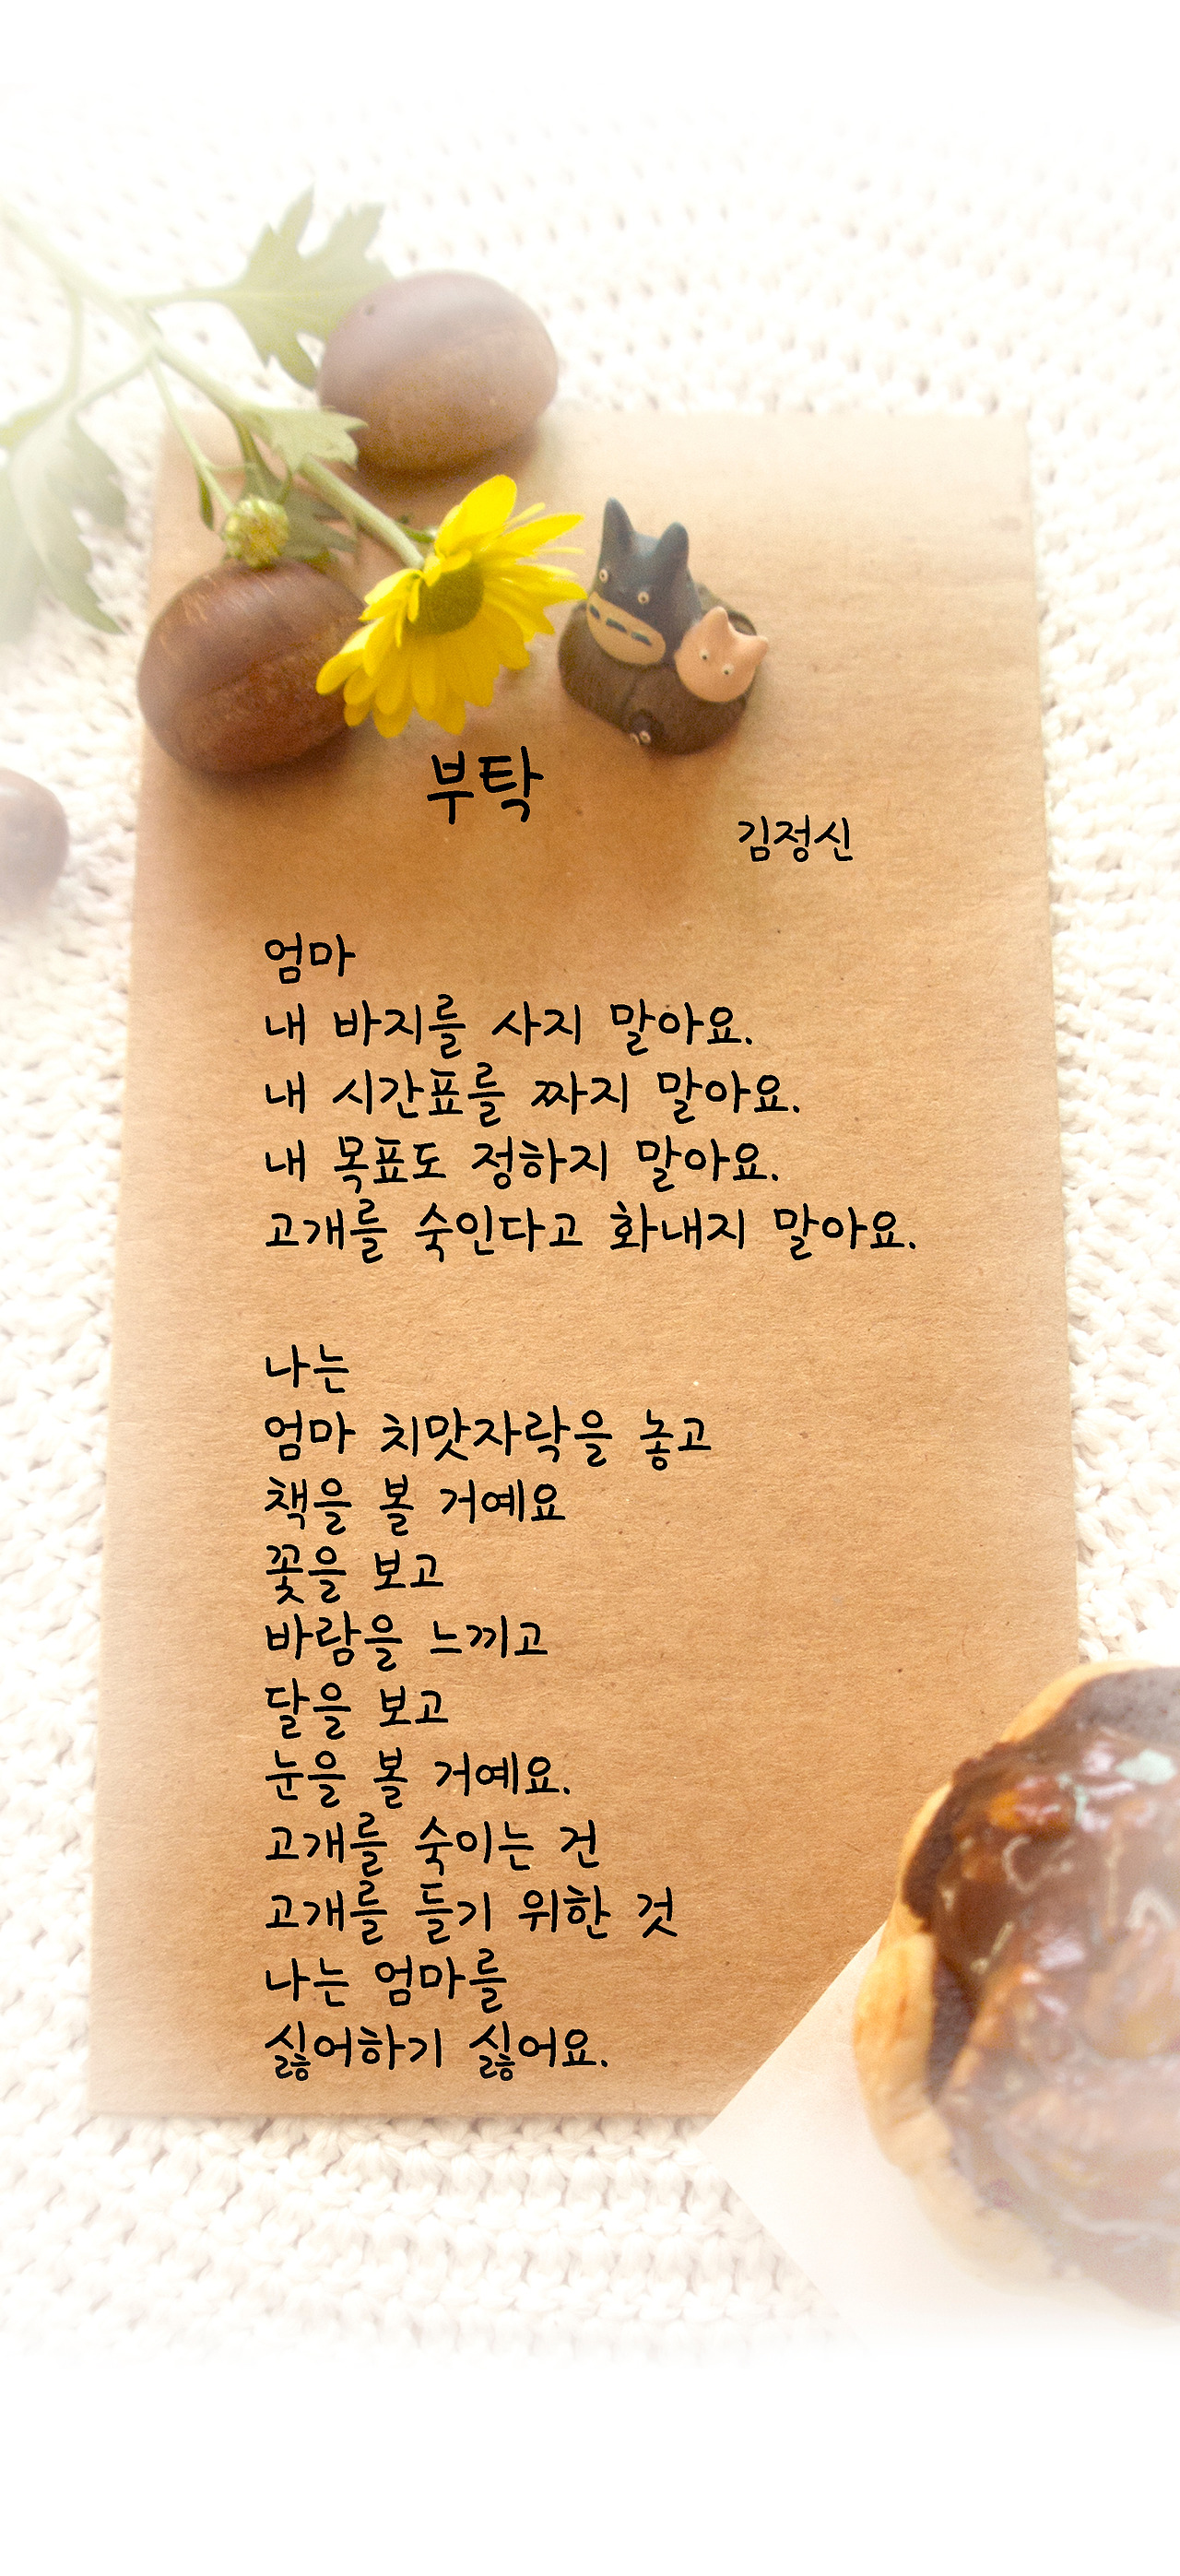 부탁
김정신
엄마
내 바지를 사지 말아요.
내 시간표를 짜지 말아요.
내 목표도 정하지 말아요.
고개를 숙인다고 화내지 말아요.
나는
엄마 치맛자락을 놓고
책을 볼 거예요
꽃을 보고
바람을 느끼고
달을 보고
눈을 볼 거예요.
고개를 숙이는 건
고개를 들기 위한 것
나는 엄마를
싫어하기 싫어요.